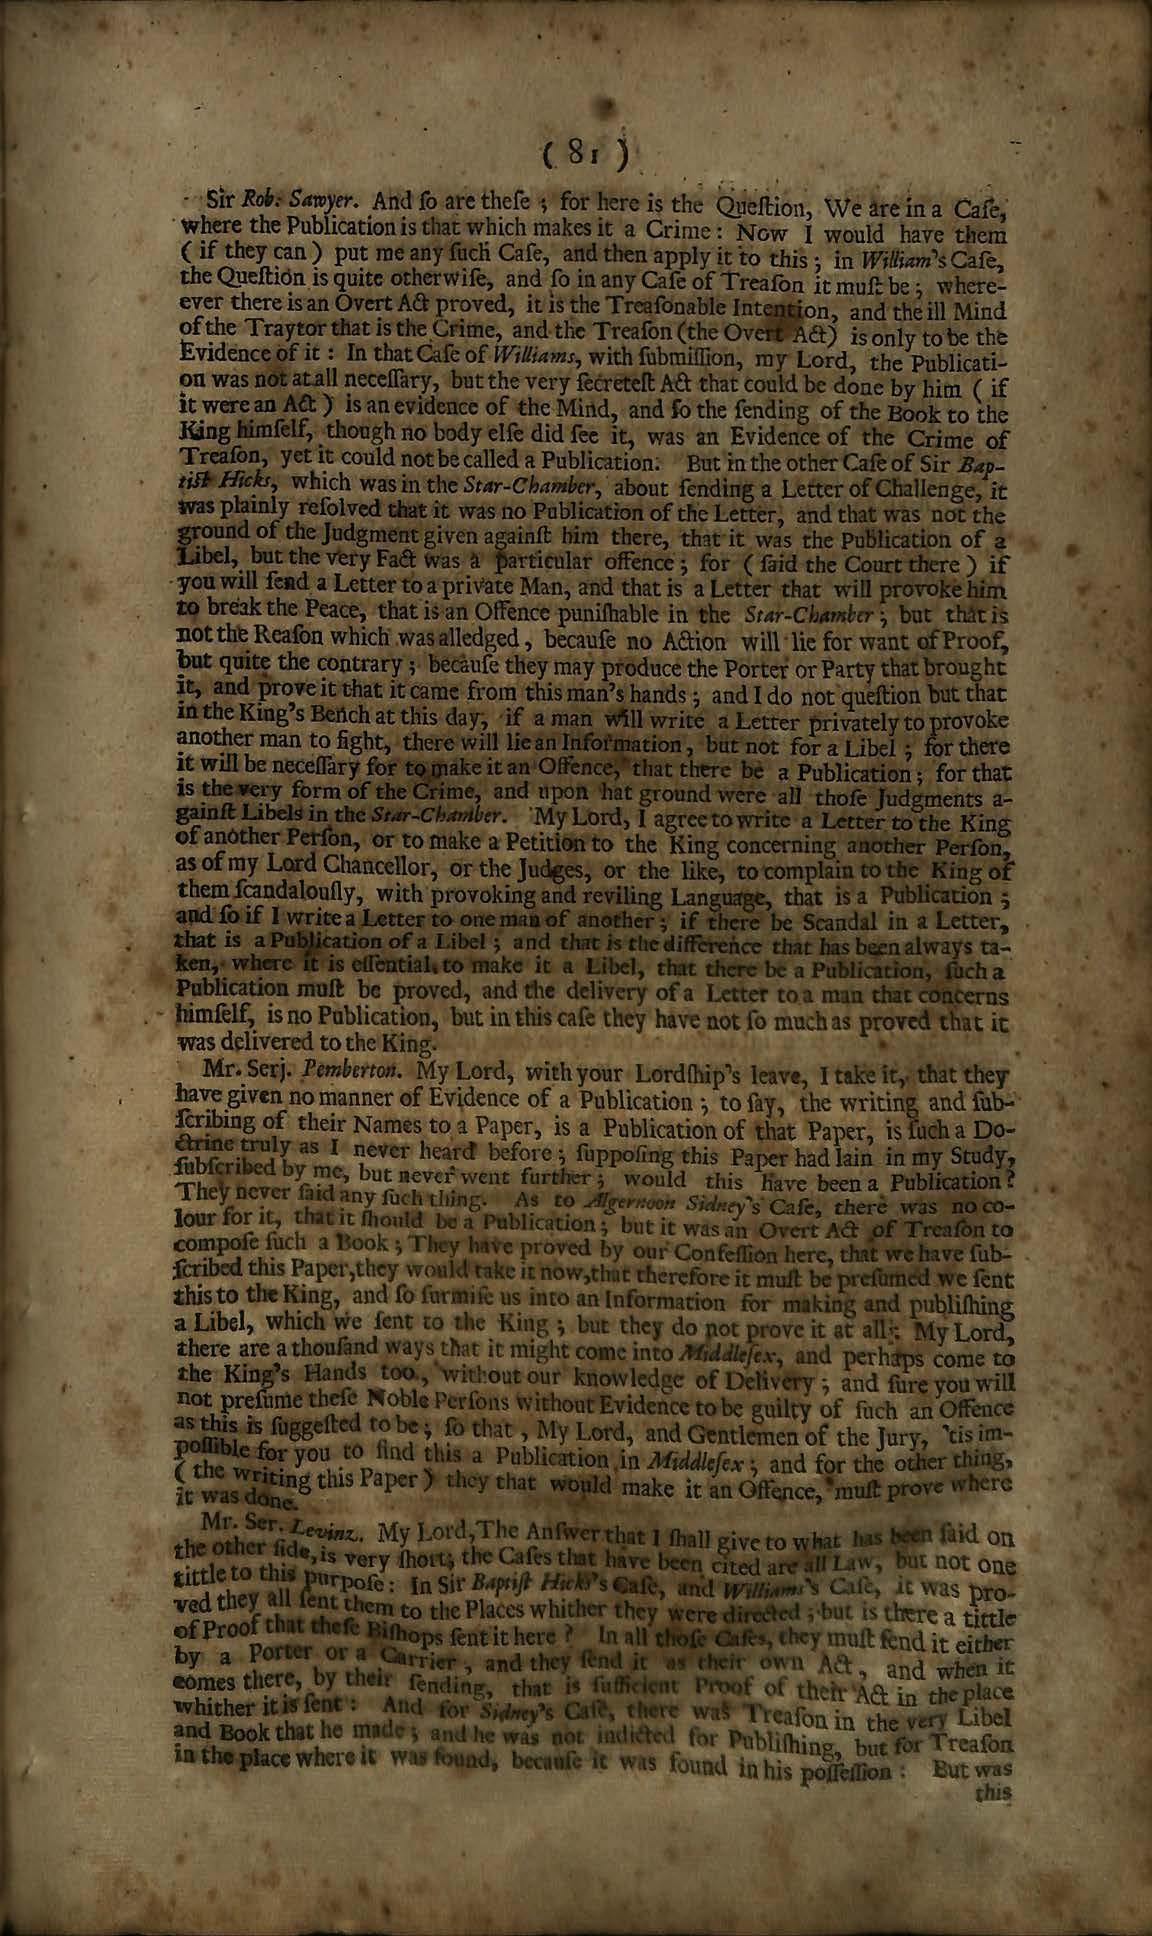 ( 81 )
Sir Rob. Sawyer. And ſo are theſe ; for here is the Queſtion, We are in a Caſe,
where the Publication is that which makes it a Crime : Now I would have them
( if they can ) put me any ſuch Caſe, and then apply it to this ; in William's Caſe,
the Queſtion is quite otherwiſe, and ſo in any Caſe of Treaſon it muſt be ; where-
ever there is an Overt Act proved, it is the Treaſonable Intention, and the ill Mind
of the Traytor that is the Crime, and the Treaſon (the Overt Act) is only to be the
Evidence of it : In that Caſe of Williams, with ſubmiſſion, my Lord, the Publicati-
on was not at all neceſſary, but the very ſecreteſt Act that could be done by him ( if
it were an Act ) is an evidence of the Mind, and ſo the ſending of the Book to the
King himſelf, though no body elſe did ſee it, was an Evidence of the Crime of
Treaſon, yet it could not be called a Publication. But in the other Caſe of Sir Bap-
tiſt Hicks, which was in the Star-Chamber, about ſending a Letter of Challenge, it
was plainly reſolved that it was no Publication of the Letter, and that was not the
ground of the Judgment given againſt him there, that it was the Publication of a
Libel, but the very Fact was a particular offence ; for ( ſaid the Court there ) if
you will ſend a Letter to a private Man, and that is a Letter that will provoke him
to break the Peace, that is an Offence puniſhable in the Star-Chamber ; but that is
not the Reaſon which was alledged, becauſe no Action will lie for want of Proof,
but quite the contrary ; becauſe they may produce the Porter or Party that brought
it, and prove it that it came from this man's hands ; and I do not queſtion but that
in the King's Bench at this day, if a man will write a Letter privately to provoke
another man to fight, there will lie an Information, but not for a Libel ; for there
it will be neceſſary for to make it an Offence, that there be a Publication ; for that
is the very form of the Crime, and upon hat ground were all thoſe Judgments a-
gainſt Libels in the Star-Chamber. My Lord, I agree to write a Letter to the King
of another Perſon, or to make a Petition to the King concerning another Perſon,
as of my Lord Chancellor, or the Judges, or the like, to complain to the King of
them ſcandalouſly, with provoking and reviling Language, that is a Publication ;
and ſo if I write a Letter to one man of another ; if there be Scandal in a Letter,
that is a Publication of a Libel ; and that is the difference that has been always ta-
ken, where it is eſſential to make it a Libel, that there be a Publication, ſuch a
Publication muſt be proved, and the delivery of a Letter to a man that concerns
himſelf, is no Publication, but in this caſe they have not ſo much as proved that it
was delivered to the King.
Mr. Serj. Pemberton. My Lord, with your Lordſhip's leave, I take it, that they
have given no manner of Evidence of a Publication ; to ſay, the writing and ſub-
ſcribing of their Names to a Paper, is a Publication of that Paper, is ſuch a Do-
ctrine truly as I never heard before ; ſuppoſing this Paper had lain in my Study,
ſubſcribed by me, but never went further ; would this have been a Publication ?
They never ſaid any ſuch thing. As to Algernoon Sidney's Caſe, there was no co-
lour for it, that it ſhould be a Publication ; but it was an Overt Act of Treaſon to
compoſe ſuch a Book ; They have proved by our Confeſſion here, that we have ſub-
ſcribed this Paper, they would take it now, that therefore it muſt be preſumed we ſent
this to the King, and ſo ſurmiſe us into an Information for making and publiſhing
a Libel, which we ſent to the King ; but they do not prove it at all ; My Lord,
there are a thouſand ways that it might come into Middleſex, and perhaps come to
the King's Hands too, without our knowledge of Delivery ; and ſure you will
not preſume theſe Noble Perſons without Evidence to be guilty of ſuch an Offence
as this is ſuggeſted to be ; ſo that , My Lord, and Gentlemen of the Jury, 'tis im-
poſſible for you to find this a Publication in Middleſex ; and for the other thing,
( the writing this Paper ) they that would make it an Offence, muſt prove where
it was done.
Mr. Ser. Levinz. My Lord, The Anſwer that I ſhall give to what has been ſaid on
the other ſide, is very ſhort ; the Caſes that have been cited are all Law, but not one
tittle to this purpoſe : In Sir Baptiſt Hicks's Caſe, and Williams's Caſe, it was pro-
ved they all ſent them to the Places whither they were directed ; but is there a tittle
of Proof that theſe Biſhops ſent it here ? In all thoſe Caſes, they muſt ſend it either
by a Porter or a Carrier , and they ſend it as their own Act , and when it
comes there, by their ſending, that is ſufficient Proof of their Act in the place
whither it is ſent : And for Sidney's Caſe, there was Treaſon in the very Libel
and Book that he made ; and he was not indicted for Publiſhing, but for Treaſon
in the place where it was found, becauſe it was found in his poſſeſſion : But was
this